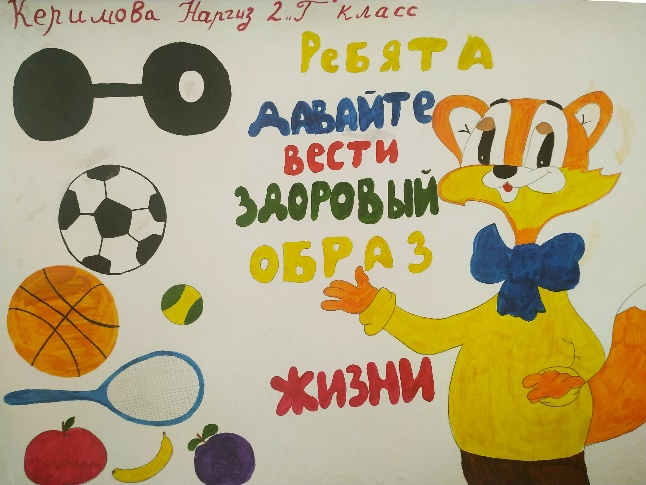 Керимова Наргиз 2 "Г" класс
Ребята
давайте
вести
здоровый
образ
жизни